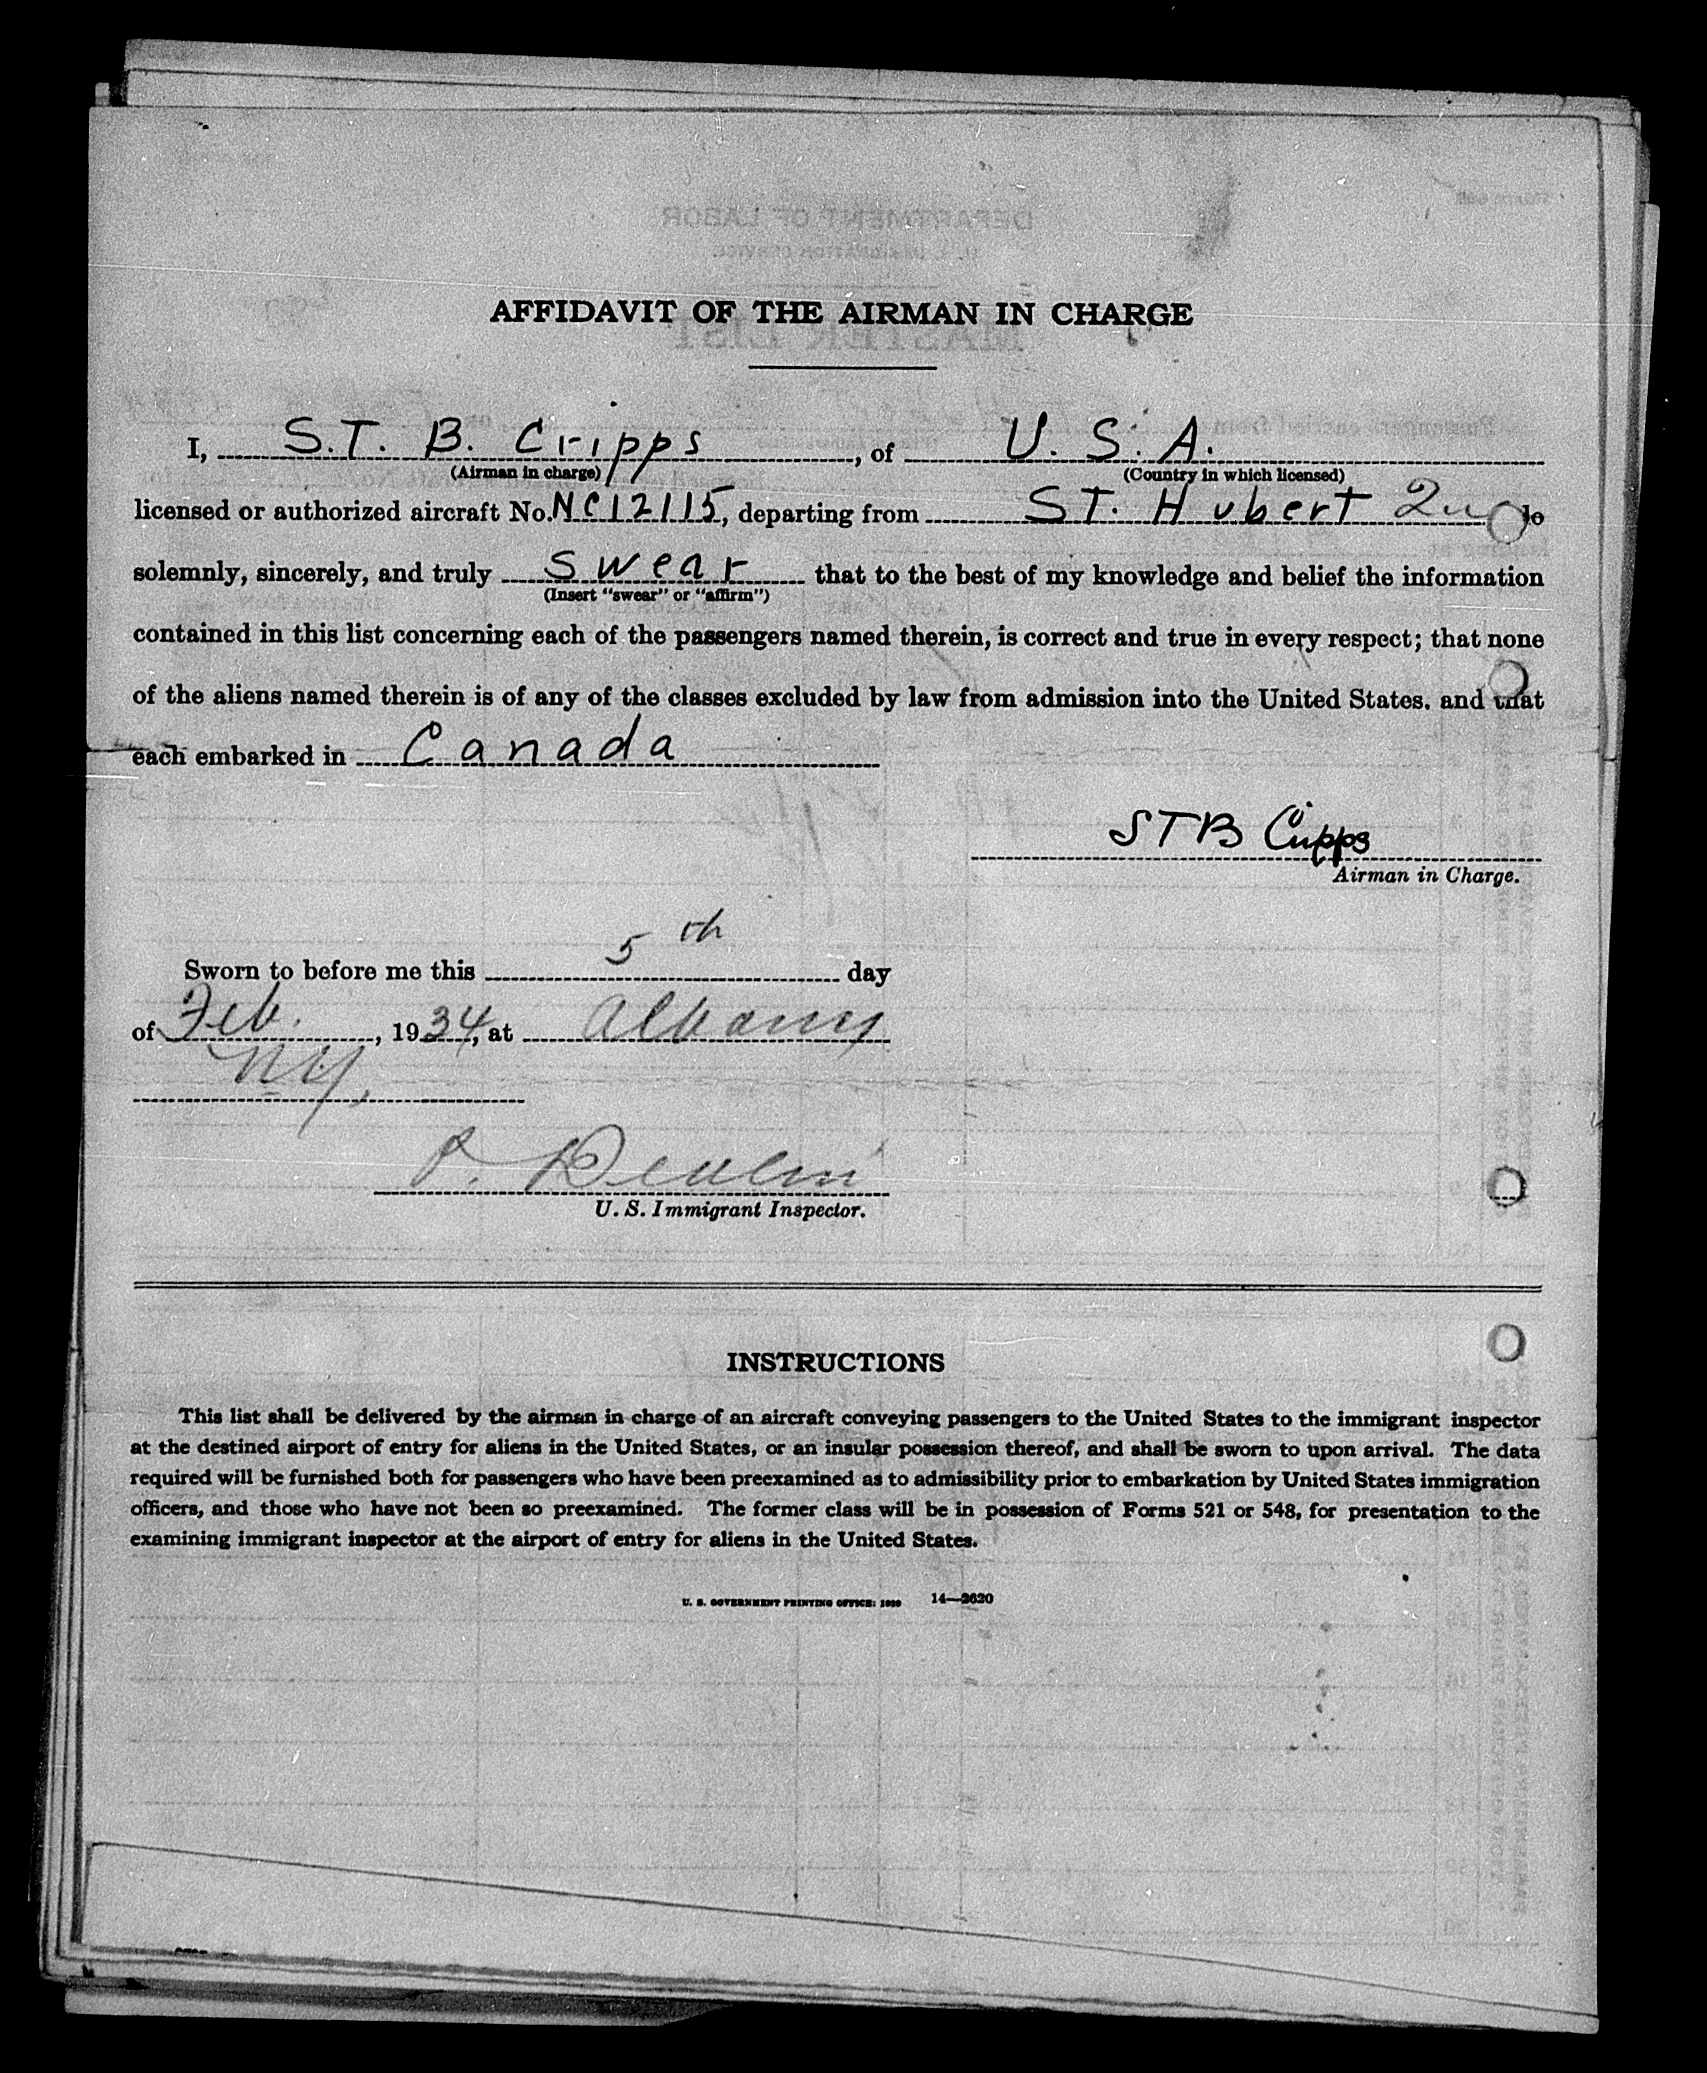 AFFIDAVIT OF THE AIRMAN IN CHARGE
I, S.T. B. Cripps, of U. S. A.
(Airman in charge) (Country in which licensed)
licensed or authorized aircraft No. NC12115, departing from ST. Hubert Que do
solemnly, sincerely, and truly swear that to the best of my knowledge and belief the information
(Insert "swear" or "affirm")
contained in this list concerning each of the passengers named therein, is correct and true in every respect; that none
of the aliens named therein is of any of the classes excluded by law from admission into the United States, and that
each embarked in Canada
STB Cripps
Airman in Charge.
Sworn to before me this 5th day
of Feb., 1934, at Albany
NY,
U. S. Immigrant Inspector.
INSTRUCTIONS
This list shall be delivered by the airman in charge of an aircraft conveying passengers to the United States to the immigrant inspector
at the destined airport of entry for aliens in the United States, or an insular possession thereof, and shall be sworn to upon arrival. The data
required will be furnished both for passengers who have been preexamined as to admissibility prior to embarkation by United States immigration
officers, and those who have not been so preexamined. The former class will be in possession of Forms 521 or 548, for presentation to the
examining immigrant inspector at the airport of entry for aliens in the United States.
U. S. GOVERNMENT PRINTING OFFICE: 14—2620
DEPARTMENT OF LABOR
MASTER LIST